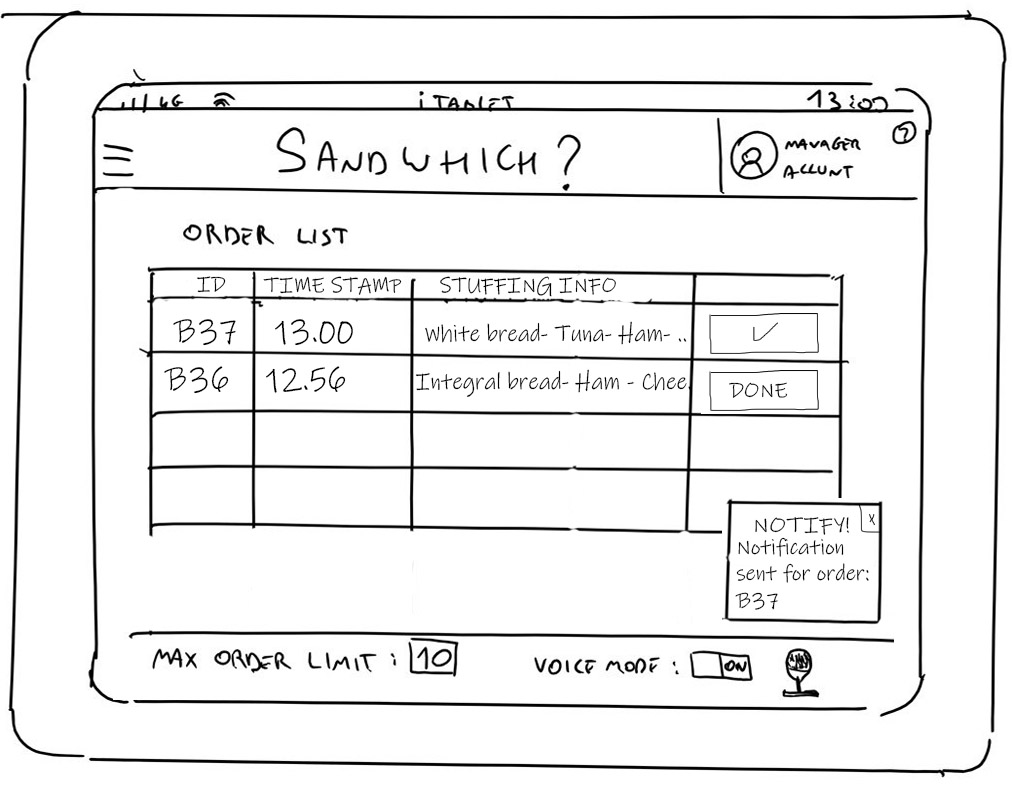 4G iTABLET 13:00
SANDWHICH?
MANAGER
ACCUNT
?
ORDER LIST
ID TIME STAMP STUFFING INFO
B37 13.00 White bread- Tuna- Ham- .. ✓
B36 12.56 Integral bread- Ham - Chee. DONE
NOTIFY! x
Notification
sent for order:
B37
MAX ORDER LIMIT: 10 VOICE MODE: ON